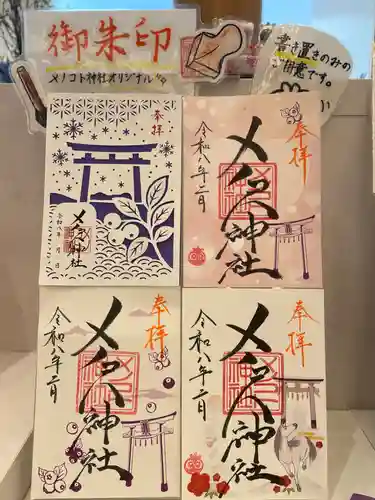 御朱印
メノコト神社オリジナル
書き置きのみの
ご用意です。
奉拝
メノコト神社
令和八年 月 日
奉拝
令和八年二月
メノコト神社
奉拝
令和八年二月
メノコト神社
奉拝
令和八年二月
メノコト神社